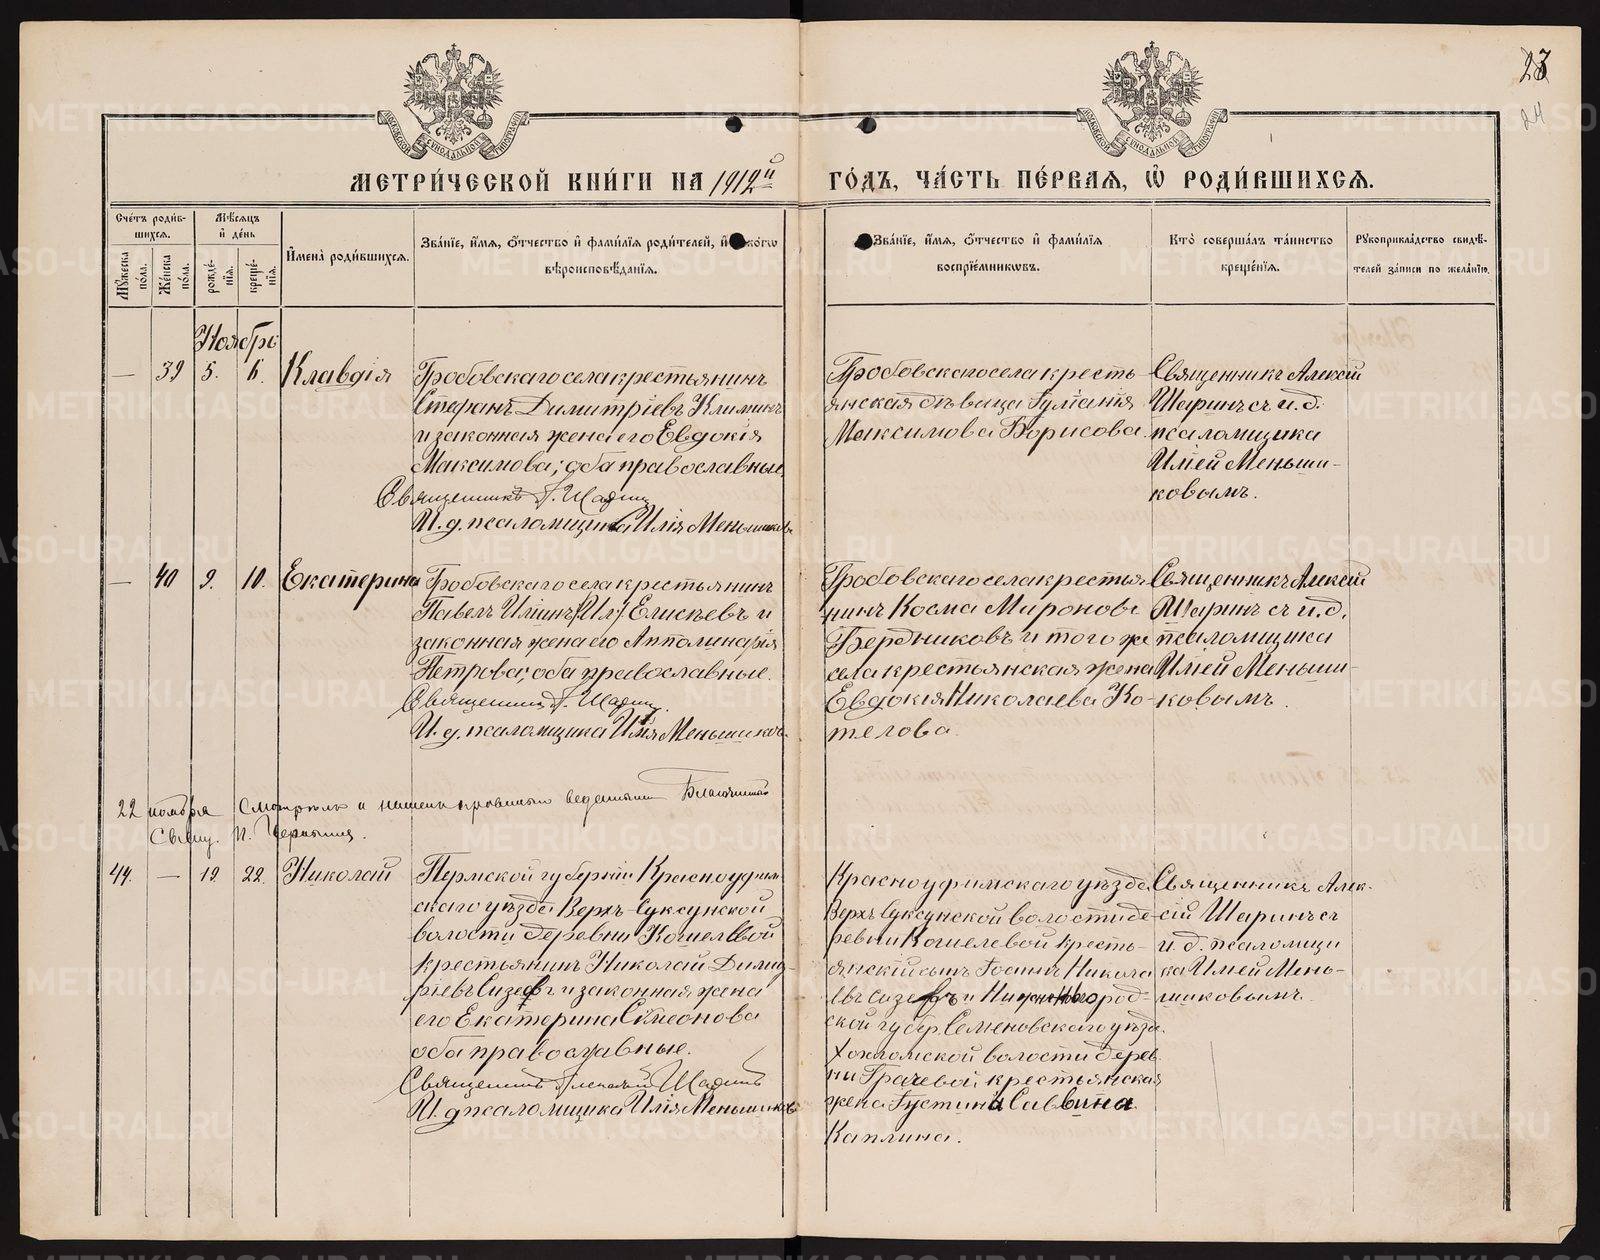 23
24
МЕТРИЧЕСКОЙ КНИГИ НА 1912й
ГОДЪ, ЧАСТЬ ПЕРВАЯ, Ѡ РОДИВШИХСЯ.
Счетъ родившихся.
Мужеска пола.
Женска пола.
Мѣсяцъ и день
рожденія.
крещенія.
Имена родившихся.
Званіе, имя, отчество и фамилія родителей, и какого
вѣроисповѣданія.
Званіе, имя, отчество и фамилія
воспріемниковъ.
Кто совершалъ таинство
крещенія.
Рукоприкладство свидѣ-
телей записи по желанію.
Ноябрь
— 39 5. 6. Клавдія
Гробовскаго села крестьянинъ
Стефанъ Димитріевъ Климинъ
и законная жена его Евдокія
Максимова; оба православные.
Священникъ А. Шаринъ
И. д. псаломщика Илія Меньшиковъ
Гробовскаго села кресть-
янская дѣвица Іуліанія
Максимова Борисова.
Священникъ Алексій
Шаринъ съ и. д.
псаломщика
Иліей Меньши-
ковымъ.
— 40 9. 10. Екатерина
Гробовскаго села крестьянинъ
Павелъ Иліинъ Елисѣевъ и
законная жена его Апполинарія
Петрова; оба православные.
Священникъ А. Шаринъ.
И. д. псаломщика Илія Меньшиковъ
Гробовскаго села крестья-
нинъ Косма Мироновъ
Бердниковъ и того же
села крестьянская жена
Евдокія Николаева Ко-
телова.
Священникъ Алексій
Шаринъ съ и. д.
псаломщика
Иліей Меньши-
ковымъ.
22 ноября Смотрѣлъ и нашелъ правильно веденными Благочинный
Свящ. П.
44. — 19. 22. Николай
Пермской губерніи Красноуфим-
скаго уѣзда Верхъ-Суксунской
волости деревни Кошелевой
крестьянинъ Николай Димит-
ріевъ Сизевъ и законная жена
его Екатерина Симеонова
оба православные.
Священникъ Алексій Шаринъ
И. д. псаломщика Илія Меньшиковъ
Красноуфимскаго уѣзда
Верхъ Суксунской волости де-
ревни Кошелевой кресть-
янскій сынъ Іоаннъ Никола
евъ Сизевъ и Нижегород-
ской губер. Семеновскаго уѣзда.
Хохломской волости дерев-
ни Грачевой крестьянская
жена Іустина Саввина
Каплина.
Священникъ Алек-
сій Шаринъ съ
и. д. псаломщи
ка Иліей Мень-
шиковымъ.